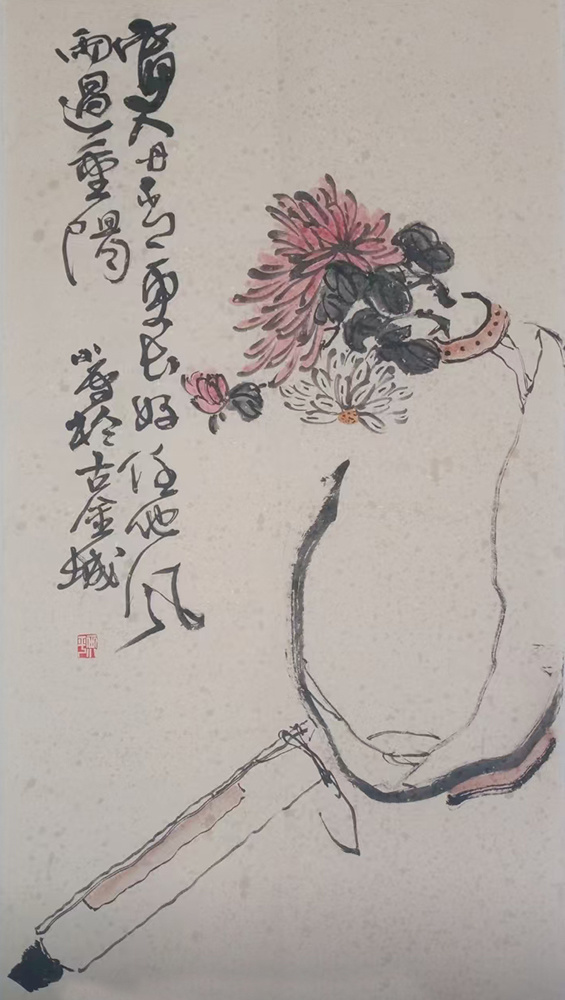 寫入丹青更長好任他風
雨過重陽
小 於古金城